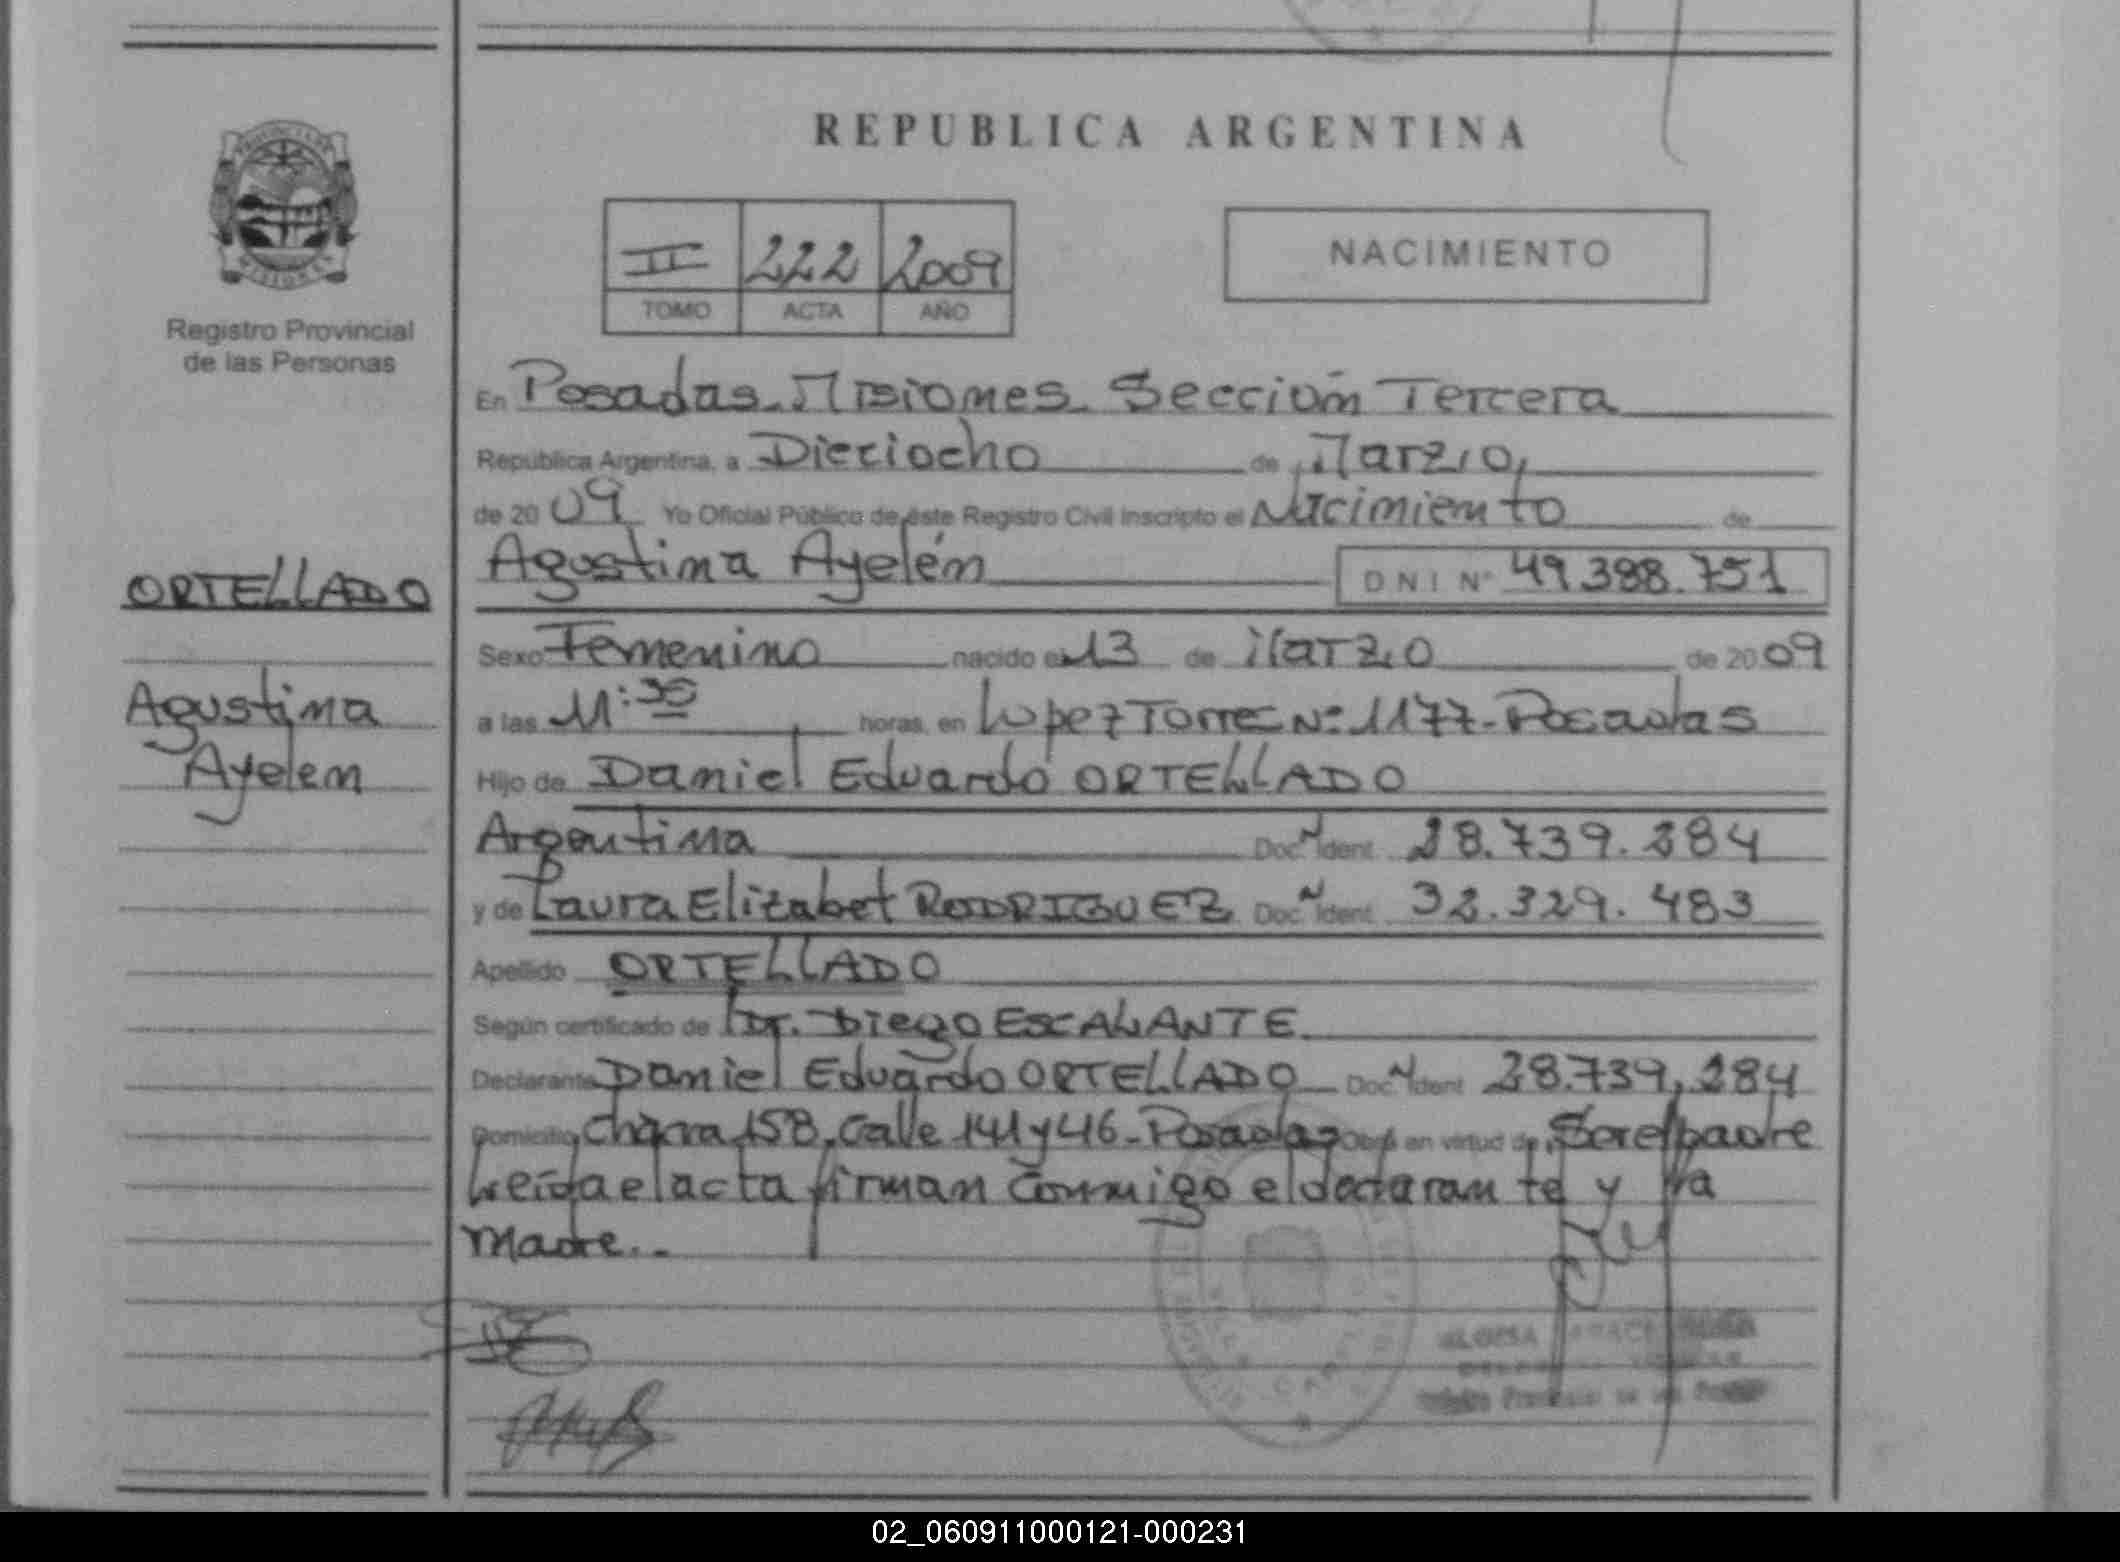 REPUBLICA ARGENTINA
II 222 2009
TOMO ACTA AÑO
NACIMIENTO
Registro Provincial
de las Personas
En Posadas. Misiones. Sección Tercera
República Argentina, a Dieciocho de Marzo,
de 2009 Yo Oficial Público de éste Registro Civil inscripto el Nacimiento de
ORTELLADO
Agustina Ayelén DNI Nº 49.388.751
Sexo Femenino nacido el 13 de Marzo de 2009
Agustina
a las 11:30 horas, en Lopez Torres Nº 1177-Posadas
Ayelen
Hijo de Daniel Eduardo ORTELLADO
Argentina Doc. N Ident. 28.739.284
y de Laura Elizabet RODRIGUEZ Doc. N Ident. 32.329.483
Apellido ORTELLADO
Según certificado de Dr. Diego ESCALANTE
Declarante Daniel Eduardo ORTELLADO Doc. N Ident. 28.739.284
Domicilio Chacra 158, Calle 141 y 46-Posadas Obra en virtud de Ser el padre
Leída el acta firman conmigo el declarante y la
Madre..
02_060911000121-000231